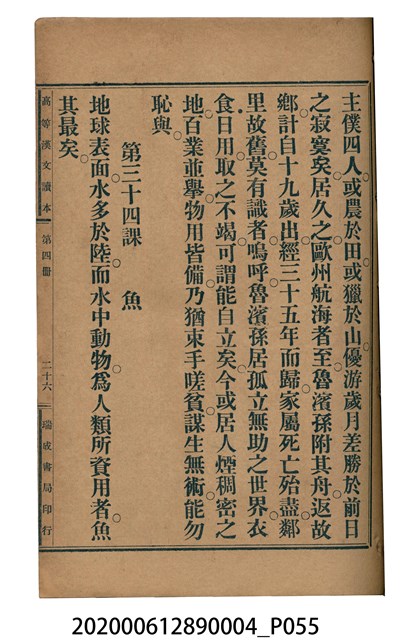 主僕四人。或農於田。或獵於山。優游歲月。差勝於前日
之寂寞矣。居久之。歐州航海者至。魯濱孫附其舟。返故
鄉。計自十九歲出。經三十五年而歸。家屬死亡殆盡。鄰
里故舊。莫有識者。嗚呼。魯濱孫居孤立無助之世界。衣
食日用。取之不竭。可謂能自立矣。今或居人煙稠密之
地。百業並舉。物用皆備。乃猶束手嗟貧。謀生無術。能勿
恥與。
第三十四課 魚
地球表面。水多於陸。而水中動物。爲人類所資用者。魚
其最矣。
高等漢文讀本 第四冊 二十六 瑞成書局印行
202000612890004_P055